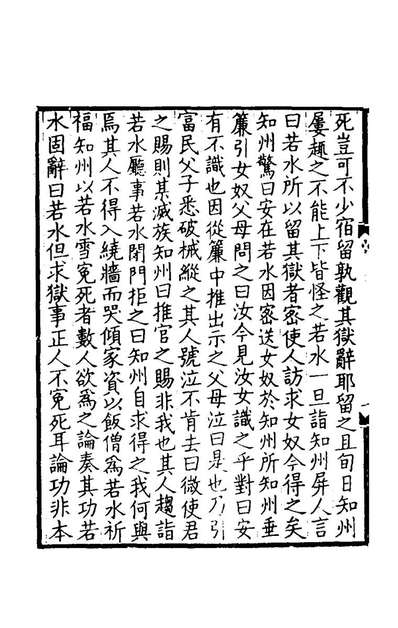 死豈可不少宿留熟觀其獄辭耶留之且旬日知州
屢趣之不能上下皆怪之若水一旦詣知州屏人言
曰若水所以留其獄者密使人訪求女奴今得之矣
知州驚曰安在若水因密送女奴於知州所知州垂
簾引女奴父母問之曰汝今見汝女識之乎對曰安
有不識也因從簾中推出示之父母泣曰是也乃引
富民父子悉破械縱之其人號泣不肯去曰微使君
之賜則某滅族知州曰推官之賜非我也其人趨詣
若水廳事若水閉門拒之曰知州自求得之我何與
焉其人不得入繞牆而哭傾家資以飯僧爲若水祈
福知州以若水雪冤死者數人欲爲之論奏其功若
水固辭曰若水但求獄事正人不冤死耳論功非本